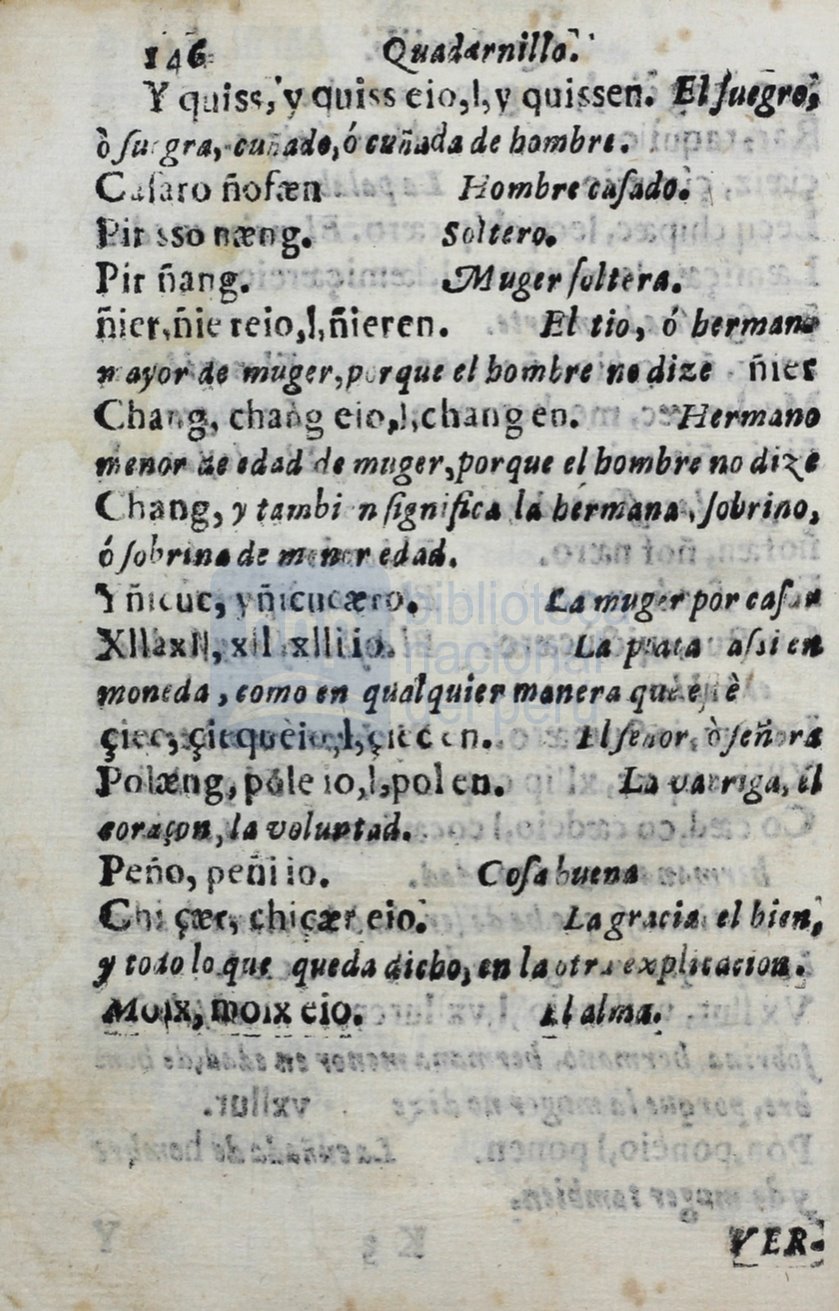 146 Quadernillo.
Y quiss, y quiss eio,l,y quissen. El suegro,
ò suegra, cuñado, ó cuñada de hombre.
Casaro ñofæn Hombre casado.
Pir sso næng. Soltero.
Pir ñang. Muger soltera.
ñier, ñie reio,l, ñieren. El tio, ó hermano
mayor de muger, porque el hombre no dize ñier
Chang, chang eio,l,changen. Hermano
menor de edad de muger, porque el hombre no dize
Chang, y tambien significa la hermana, sobrino,
ó sobrina de menor edad.
Y ñicuc, yñicucæro. La muger por casar
Xllaxll, La plata assi en
moneda, como en qualquier manera que estè
çiec, çiequeio,l,çiecen. El señor, ò señora
Polæng, póle io,l,polen. La barriga, el
coraçon, la voluntad.
Peño, peñi io. Cosa buena
Chi çær, chiçær eio. La gracia el bien,
y todo lo que queda dicho, en la otra explicacion.
Moix, moix eio. El alma.
VER-
biblioteca
nacional
del perú